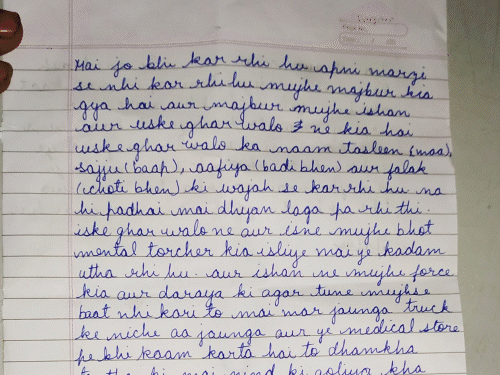 Mai jo bhi kar rhi hu apni marzi
se nhi kar rhi hu mujhe majbur kia
gya hai aur majbur mujhe ishan
aur uske ghar walo ne kia hai
uske ghar walo ka naam tasleen (maa),
sajju (baap), aafiya (badi bhen) aur falak
(choti bhen) ki wajah se kar rhi hu na
hi padhai mai dhyan laga pa rhi thi.
iske ghar walo ne aur isne mujhe bhot
mental torcher kia isliye mai ye kadam
utha rhi hu. aur ishan ne mujhe force
kia aur daraya ki agar tune mujhse
baat nhi kari to mai mar jaunga truck
ke niche aa jaunga aur ye medical store
pe bhi kaam karta hai to dhamkha
ki mai nind ki goliya kha